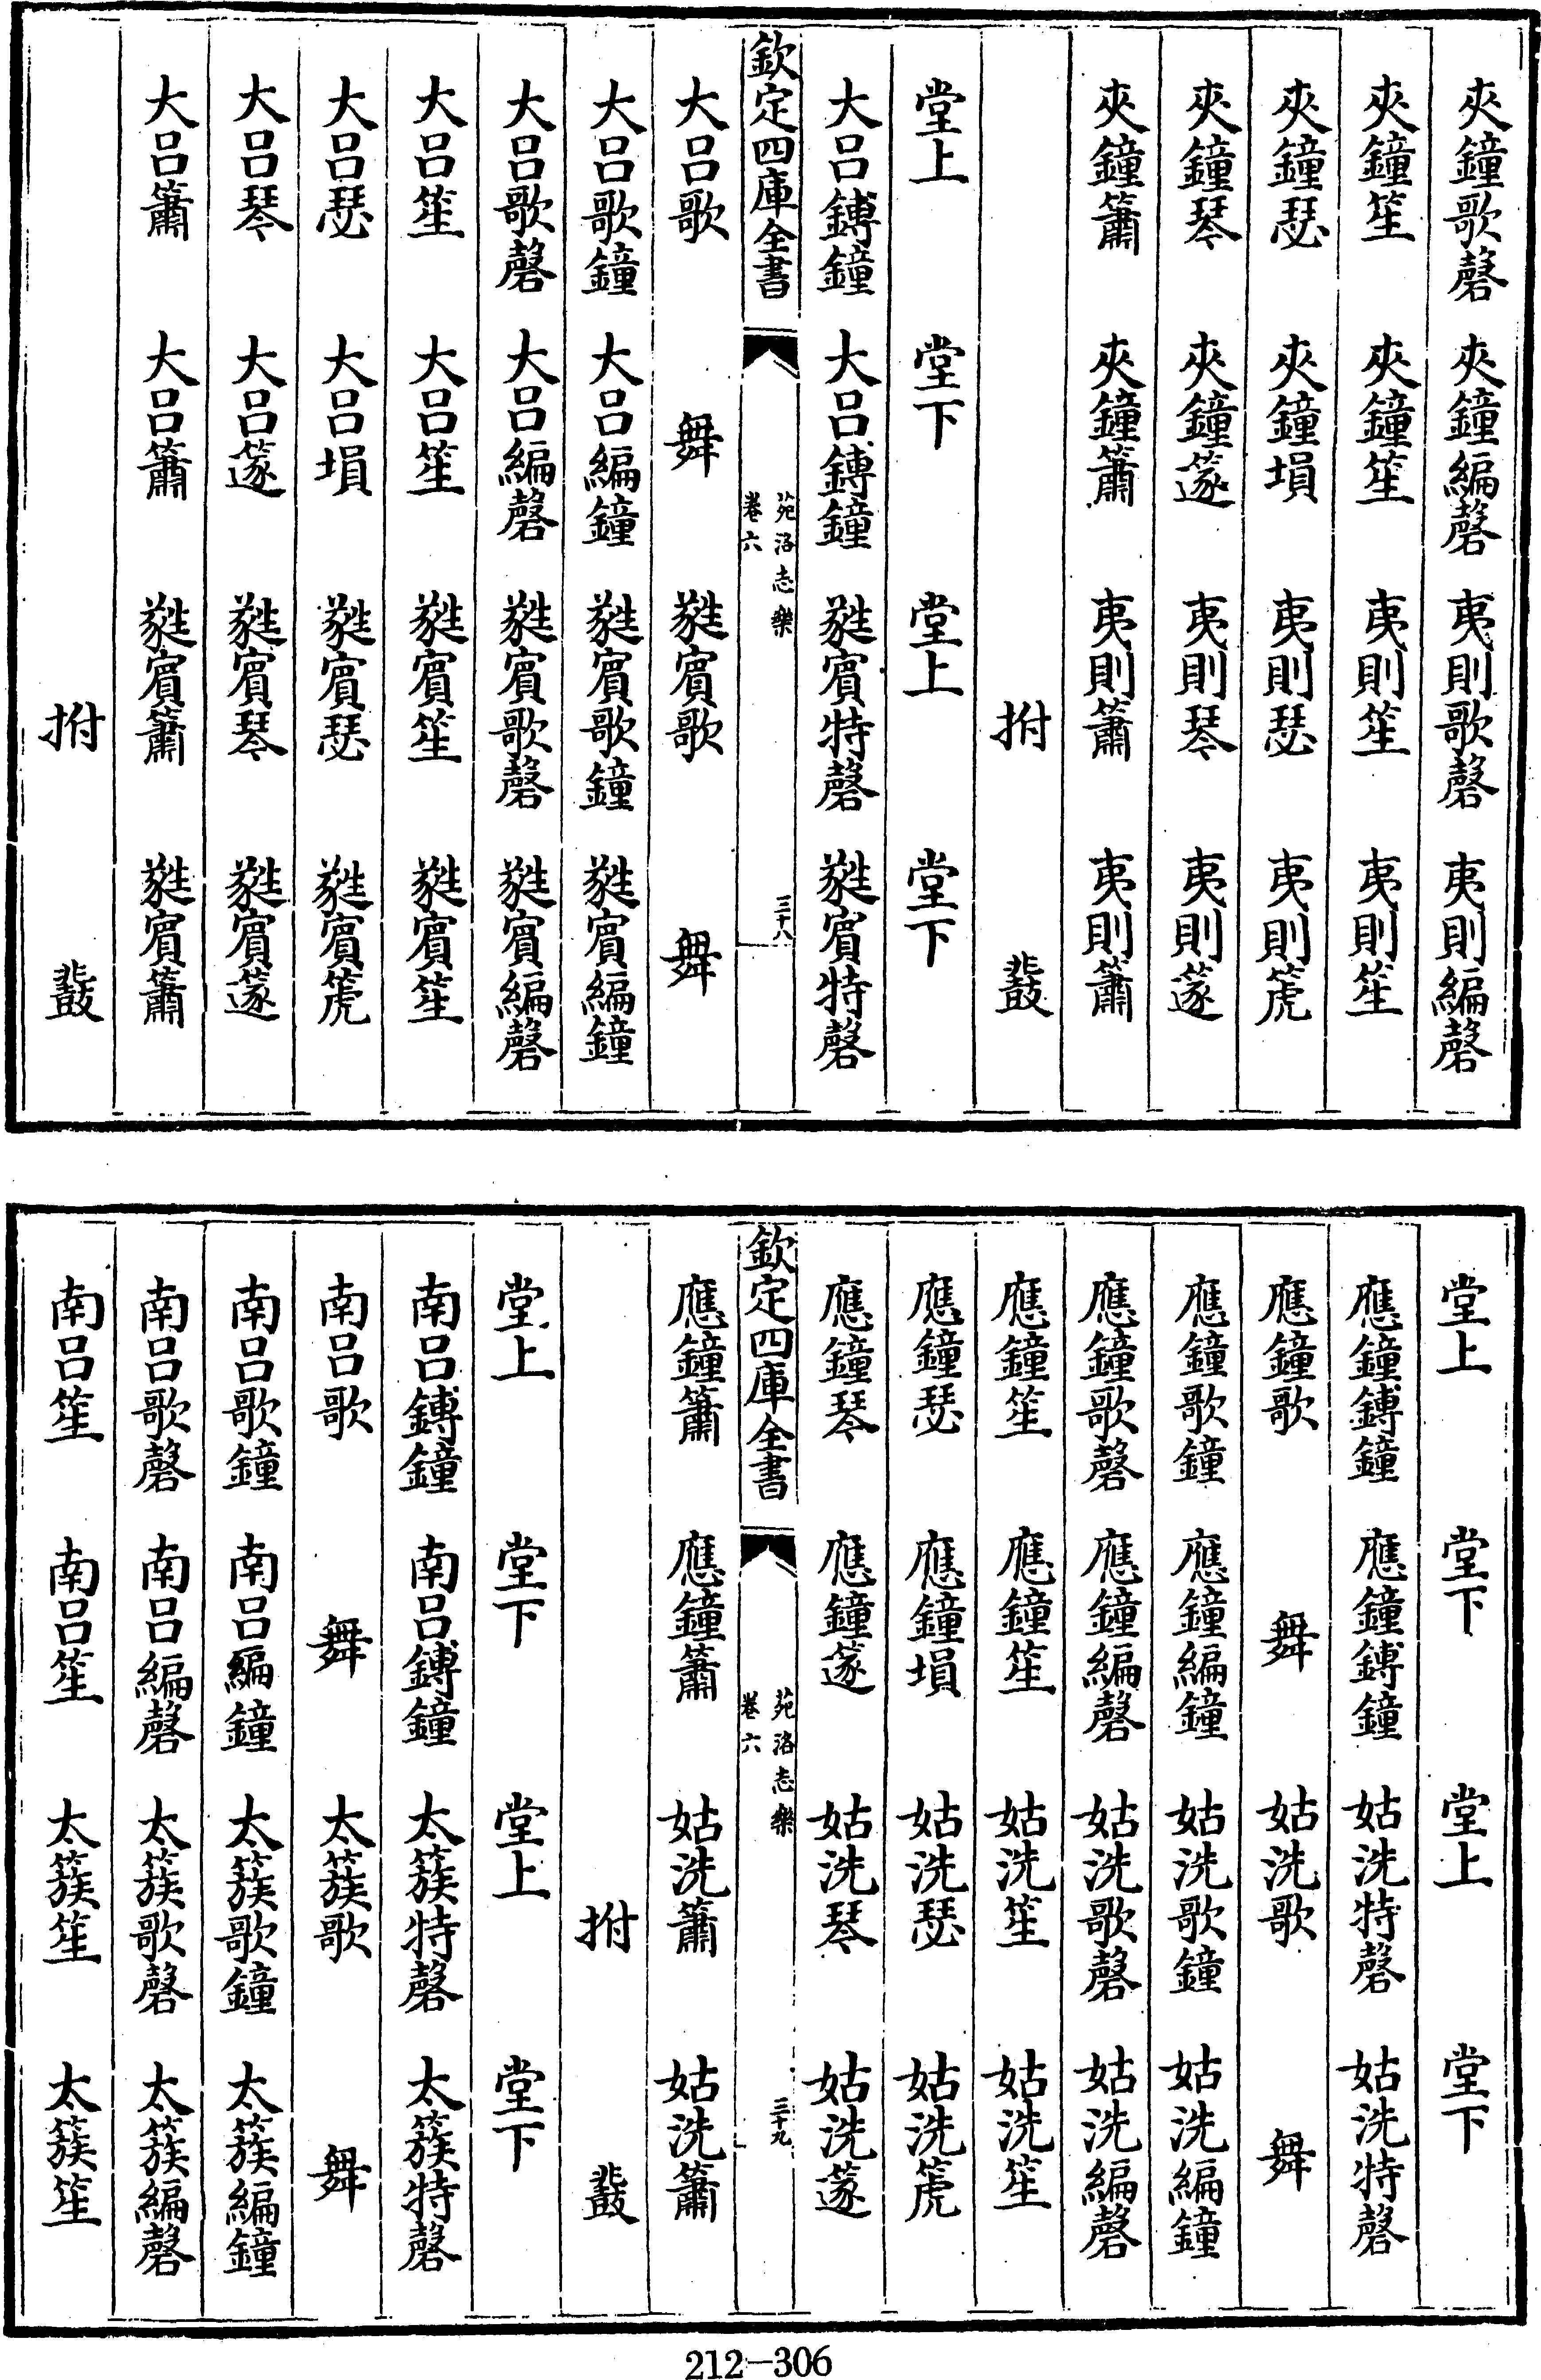 夾鐘歌磬 夾鐘編磬 夷則歌磬 夷則編磬
夾鐘笙 夾鐘笙 夷則笙 夷則笙
夾鐘瑟 夾鐘塤 夷則瑟 夷則箎
夾鐘琴 夾鐘篴 夷則琴 夷則篴
夾鐘簫 夾鐘簫 夷則簫 夷則簫
拊 鼗
堂上 堂下 堂上 堂下
大呂鎛鐘 大呂鎛鐘 蕤賓特磬 蕤賓特磬
欽定四庫全書 苑洛志樂 卷六 三十八
大呂歌 舞 蕤賓歌 舞
大呂歌鐘 大呂編鐘 蕤賓歌鐘 蕤賓編鐘
大呂歌磬 大呂編磬 蕤賓歌磬 蕤賓編磬
大呂笙 大呂笙 蕤賓笙 蕤賓笙
大呂瑟 大呂塤 蕤賓瑟 蕤賓箎
大呂琴 大呂篴 蕤賓琴 蕤賓篴
大呂簫 大呂簫 蕤賓簫 蕤賓簫
拊 鼗
堂上 堂下 堂上 堂下
應鐘鎛鐘 應鐘鎛鐘 姑洗特磬 姑洗特磬
應鐘歌 舞 姑洗歌 舞
應鐘歌鐘 應鐘編鐘 姑洗歌鐘 姑洗編鐘
應鐘歌磬 應鐘編磬 姑洗歌磬 姑洗編磬
應鐘笙 應鐘笙 姑洗笙 姑洗笙
應鐘瑟 應鐘塤 姑洗瑟 姑洗箎
應鐘琴 應鐘篴 姑洗琴 姑洗篴
欽定四庫全書 苑洛志樂 卷六 三十九
應鐘簫 應鐘簫 姑洗簫 姑洗簫
拊 鼗
堂上 堂下 堂上 堂下
南呂鎛鐘 南呂鎛鐘 太簇特磬 太簇特磬
南呂歌 舞 太簇歌 舞
南呂歌鐘 南呂編鐘 太簇歌鐘 太簇編鐘
南呂歌磬 南呂編磬 太簇歌磬 太簇編磬
南呂笙 南呂笙 太簇笙 太簇笙
212-306